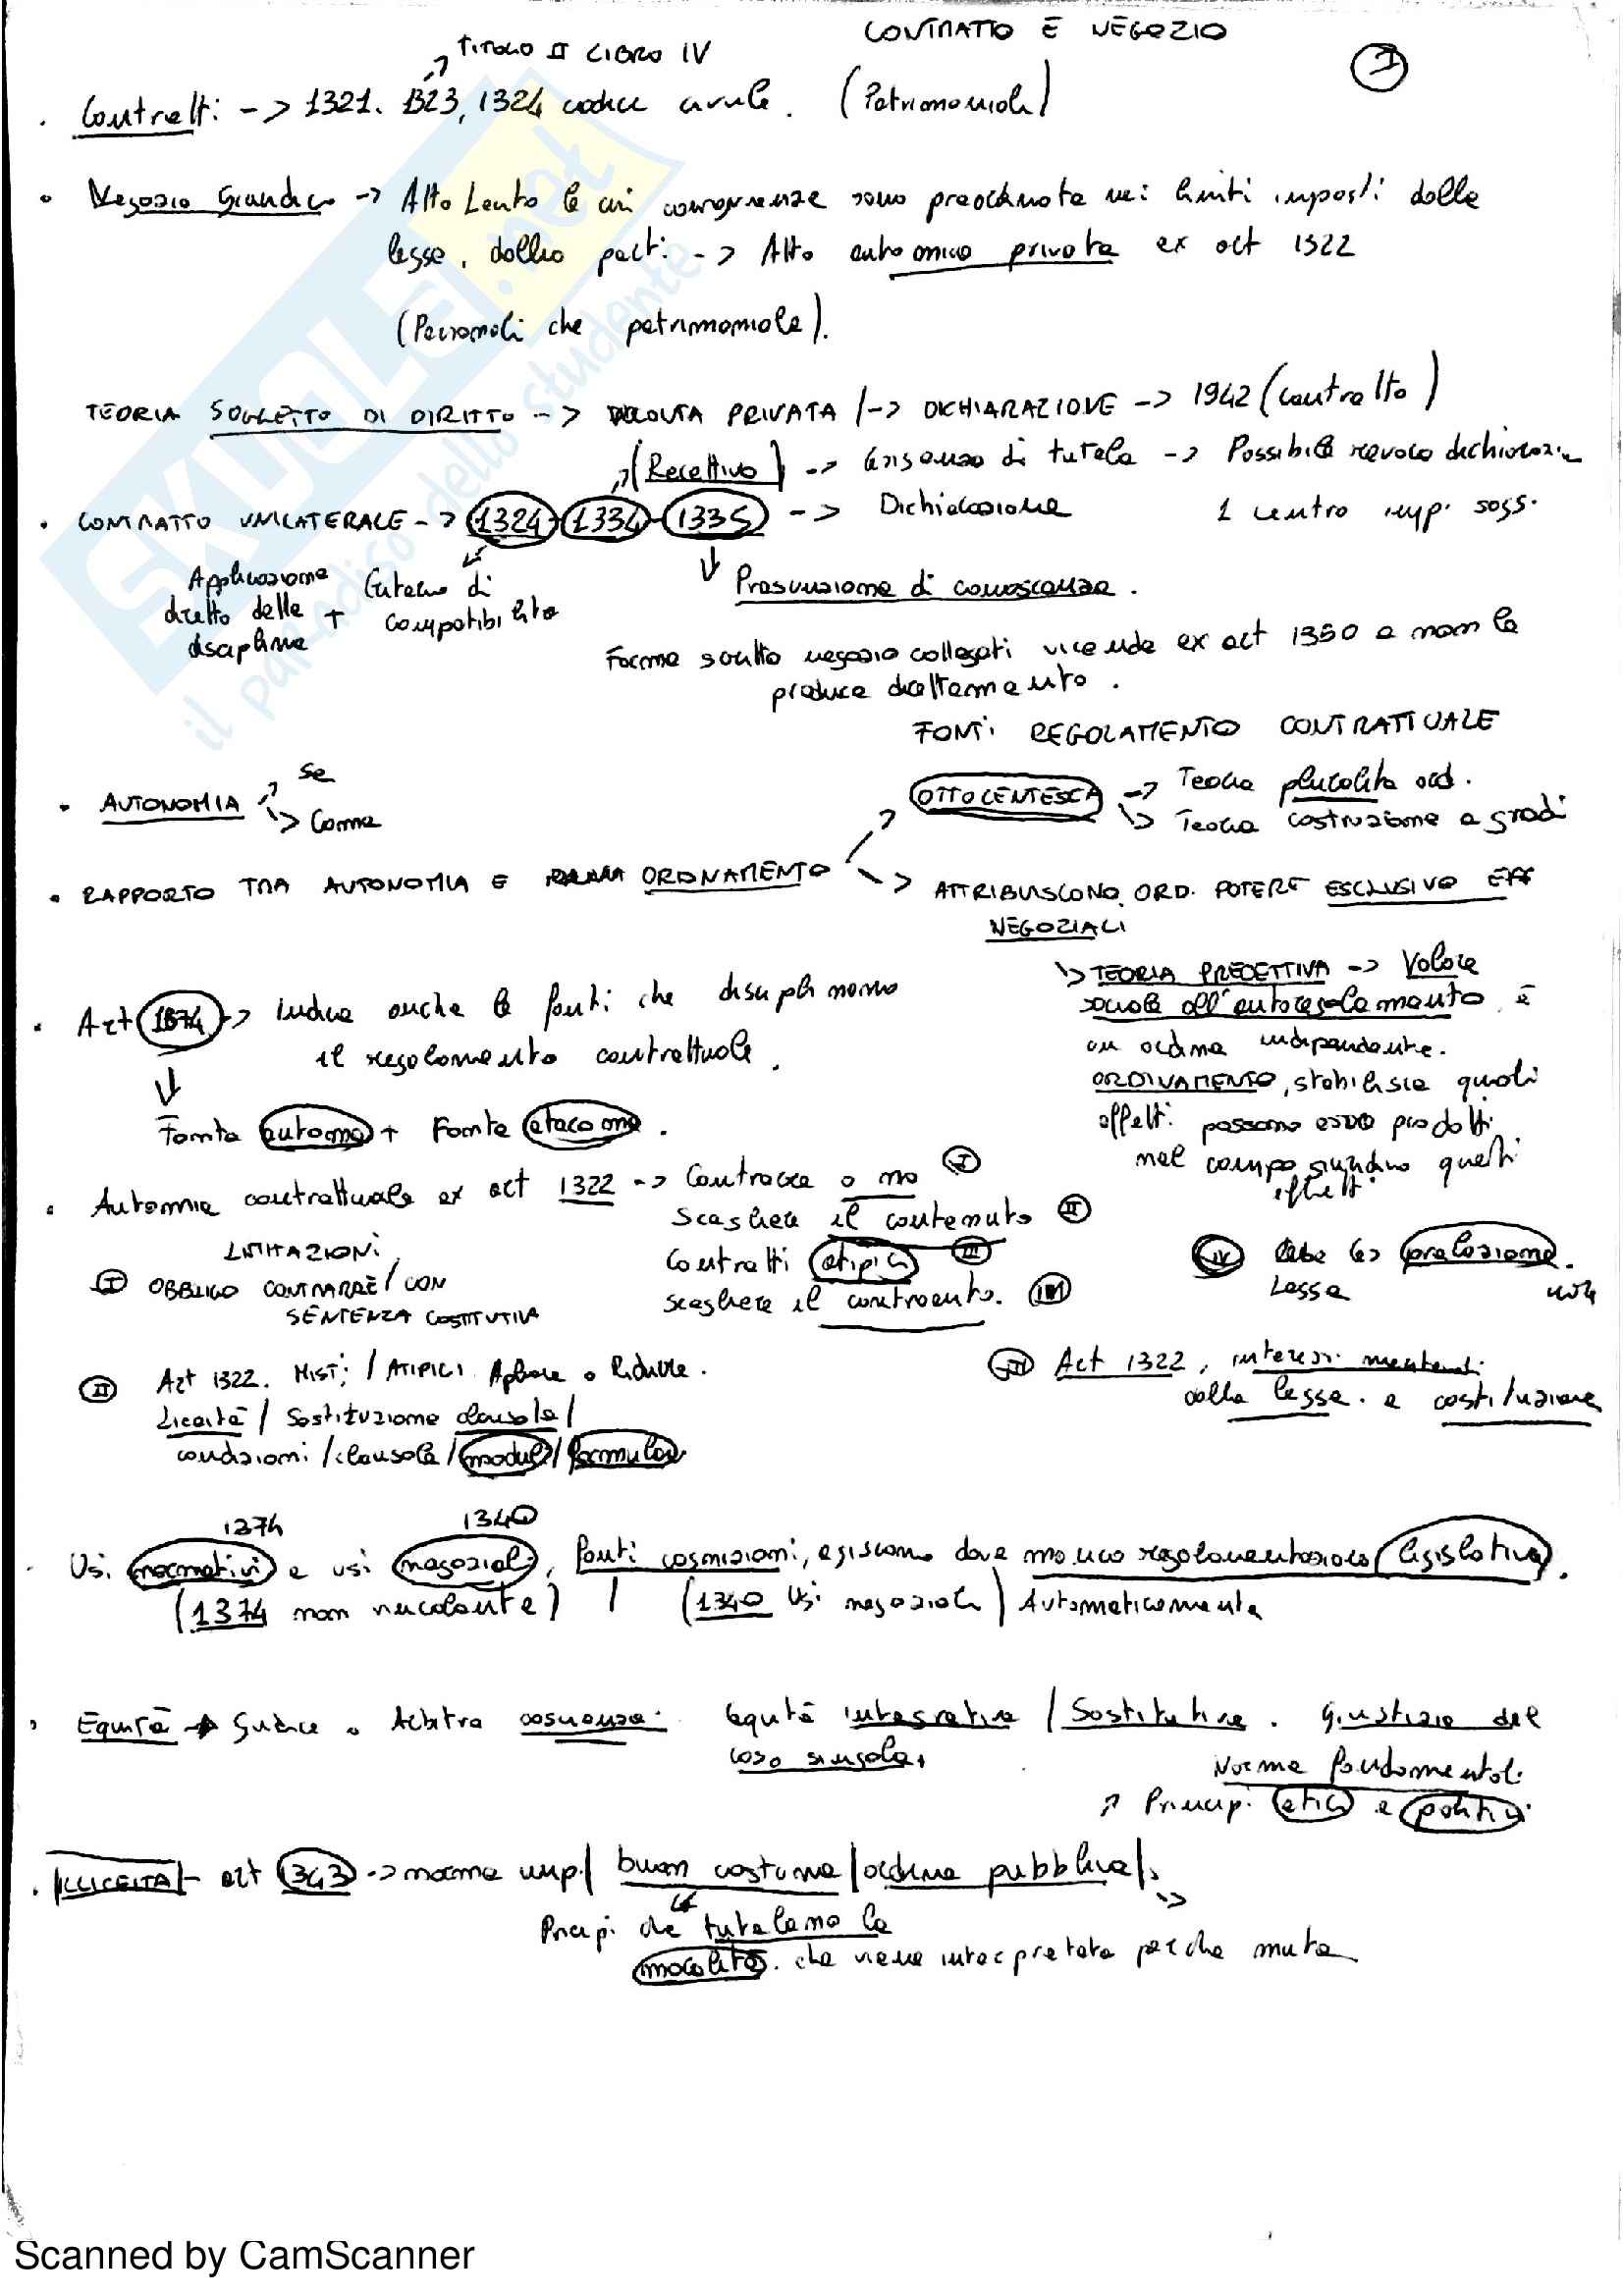 CONTRATTO E NEGOZIO
1
TITOLO II LIBRO IV
Contratti -> 1321. 1323, 1324 codice civile. (Patrimoniale)
Negozio Giuridico -> Atto Lecito le cui conseguenze sono preordinate nei limiti imposti dalla
legge, dalle parti -> Atto autonomia privata ex art 1322
(Personali che patrimoniale).
TEORIA SOGGETTO DI DIRITTO -> VOLONTA PRIVATA / -> DICHIARAZIONE -> 1942 (contratto)
(Recettivo) -> di tutela -> Possibile revoca dichiarazio
CONTRATTO UNILATERALE -> 1324 - 1334 - 1335 -> Dichiarazione 1 centro imp. sogg.
Applicazione
diretta della + Criterio di
disciplina compatibilità
Presunzione di conoscenza.
Forma scritta negozio collegati vicende ex art 1350 e non le
produce direttamente.
FONTI REGOLAMENTO CONTRATTUALE
AUTONOMIA Se
Come
OTTOCENTESCA -> Teoria pluralità ord.
-> Teoria costruzione a gradi
RAPPORTO TRA AUTONOMIA E ORDINAMENTO
ATTRIBUISCONO ORD. POTERE ESCLUSIVO EFF
NEGOZIALI
TEORIA PRECETTIVA -> Valore
sociale all'autoregolamento, è
un ordine indipendente.
ORDINAMENTO, stabilisce quali
effetti possono essere prodotti
nel campo giuridico questi
effetti
Art 1374 -> Indica anche le fonti che disciplinano
il regolamento contrattuale.
Fonte autonoma + Fonte eteronoma.
Autonomia contrattuale ex art 1322 -> Contrarre o no I
Scegliere il contenuto II
Contratti atipici III
scegliere il contraente. IV
LIMITAZIONI
I OBBLIGO CONTRARRE / CON
SENTENZA COSTITUTIVA
IV prelazione.
Legge
II Art 1322. MISTI / ATIPICI Ridurre.
Liceità / Sostituzione clausole /
condizioni / clausole / moduli / formulari
III Art 1322, interessi meritevoli
dalla legge. e costituzione
1374 1340
Usi normativi e usi negoziali, fonti cognizioni, agiscono dove manca regolamentazione legislativa.
(1374 non vincolante) / (1340 Usi negoziali) Automaticamente
Equità -> Giudice o Arbitro Equità integrativa / Sostitutiva. Giustizia del
caso singolo.
Norme fondamentali
Principi etici e politici
ILLICEITÀ - art 1343 -> norme imp / buon costume / ordine pubblico /
Principi che tutelano la
moralità. che viene interpretata perche muta
Scanned by CamScanner
SKUOLA.net
il paradiso dello studente